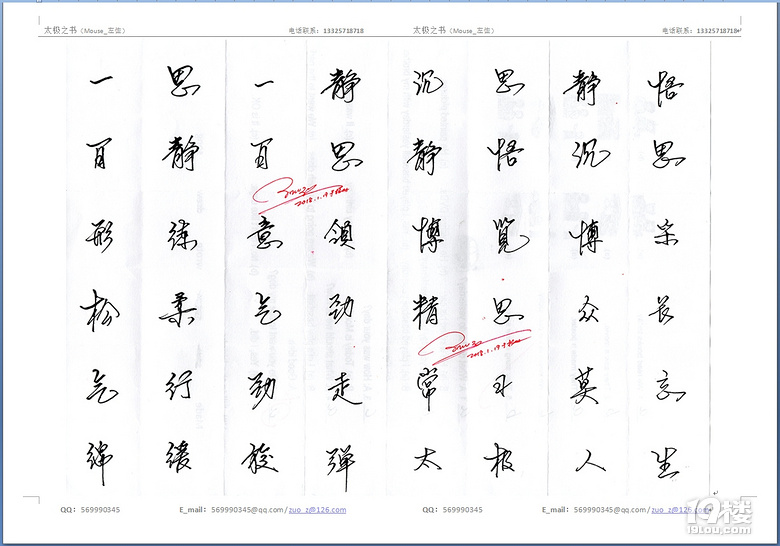 太极之书（Mouse_左）
电话联系：13325718718
太极之书（Mouse_左）
电话联系：13325718718
一 思 一 静
百 静 百 思
形 练 意 领
松 柔 气 劲
气 行 劲 走
绵 缓 旋 弹
2018.1.19于杭州
沉 思 静 悟
静 悟 沉 思
博 览 博 采
精 思 众 长
常 习 莫 忘
太 极 人 生
2018.1.19于杭州
QQ：569990345
E_mail：569990345@qq.com/zuo_z@126.com
QQ：569990345
E_mail：569990345@qq.com/zuo_z@126.com
19楼
19lou.com